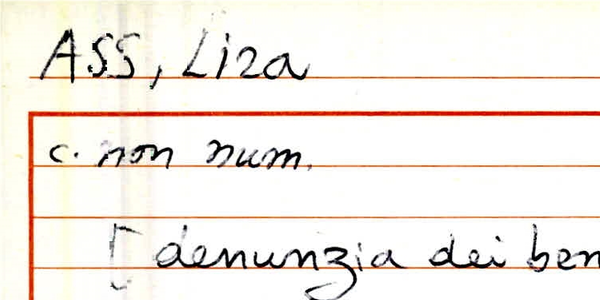 ASS, Liza
c. non num.
[denunzia dei ben